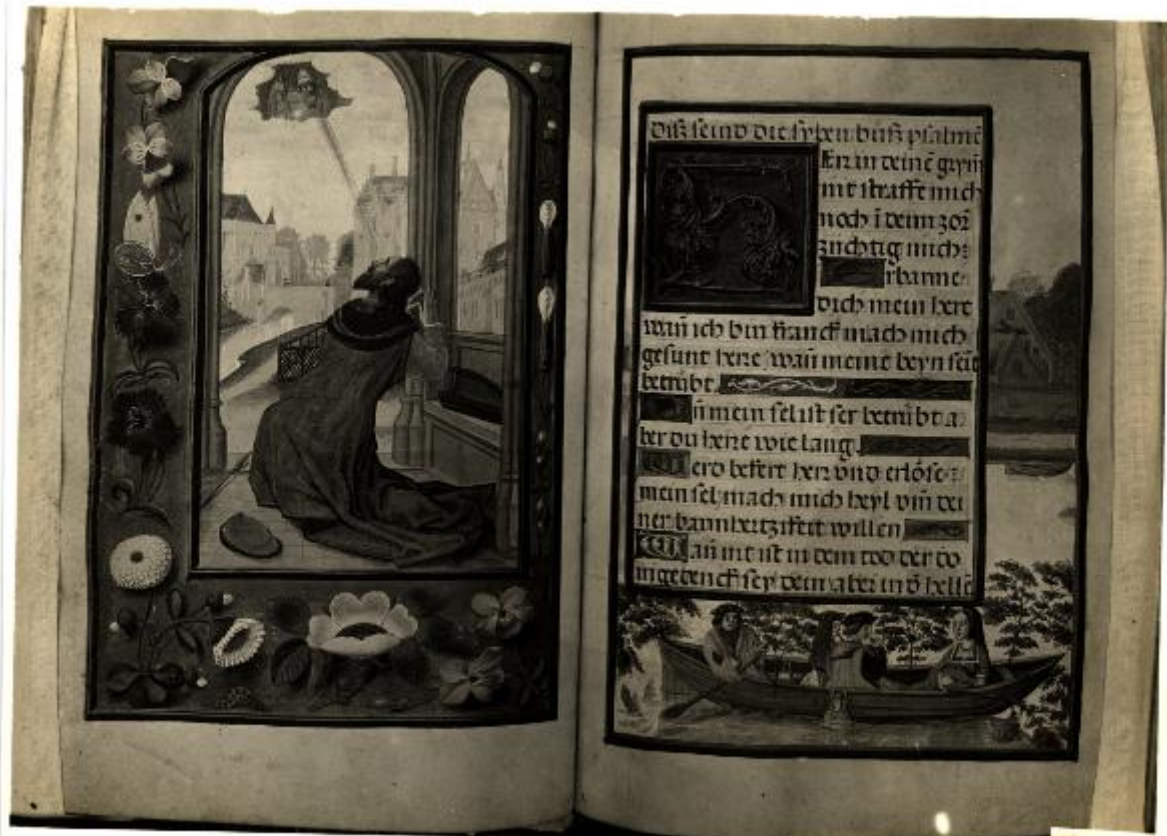 Diß seind die syben buß psalmē
Er in deinē grym̄
nit straffe mich
noch ī deim zorn
züchtig mich:
rbarme
dich mein here
wañ ich bin kranck mach mich
gesunt herre wañ meine beyn seīt
betrübt
ñ mein sel ist ser betrübt a:
ber du herre wie lang.
Werd bekert herr vnd erlöse:
mein sel mach mich heyl vm̄ dei
ner barmhertzikeit willen
Wañ nit ist in dem tod der do
ingedenck sey dein aber in d̄ helle